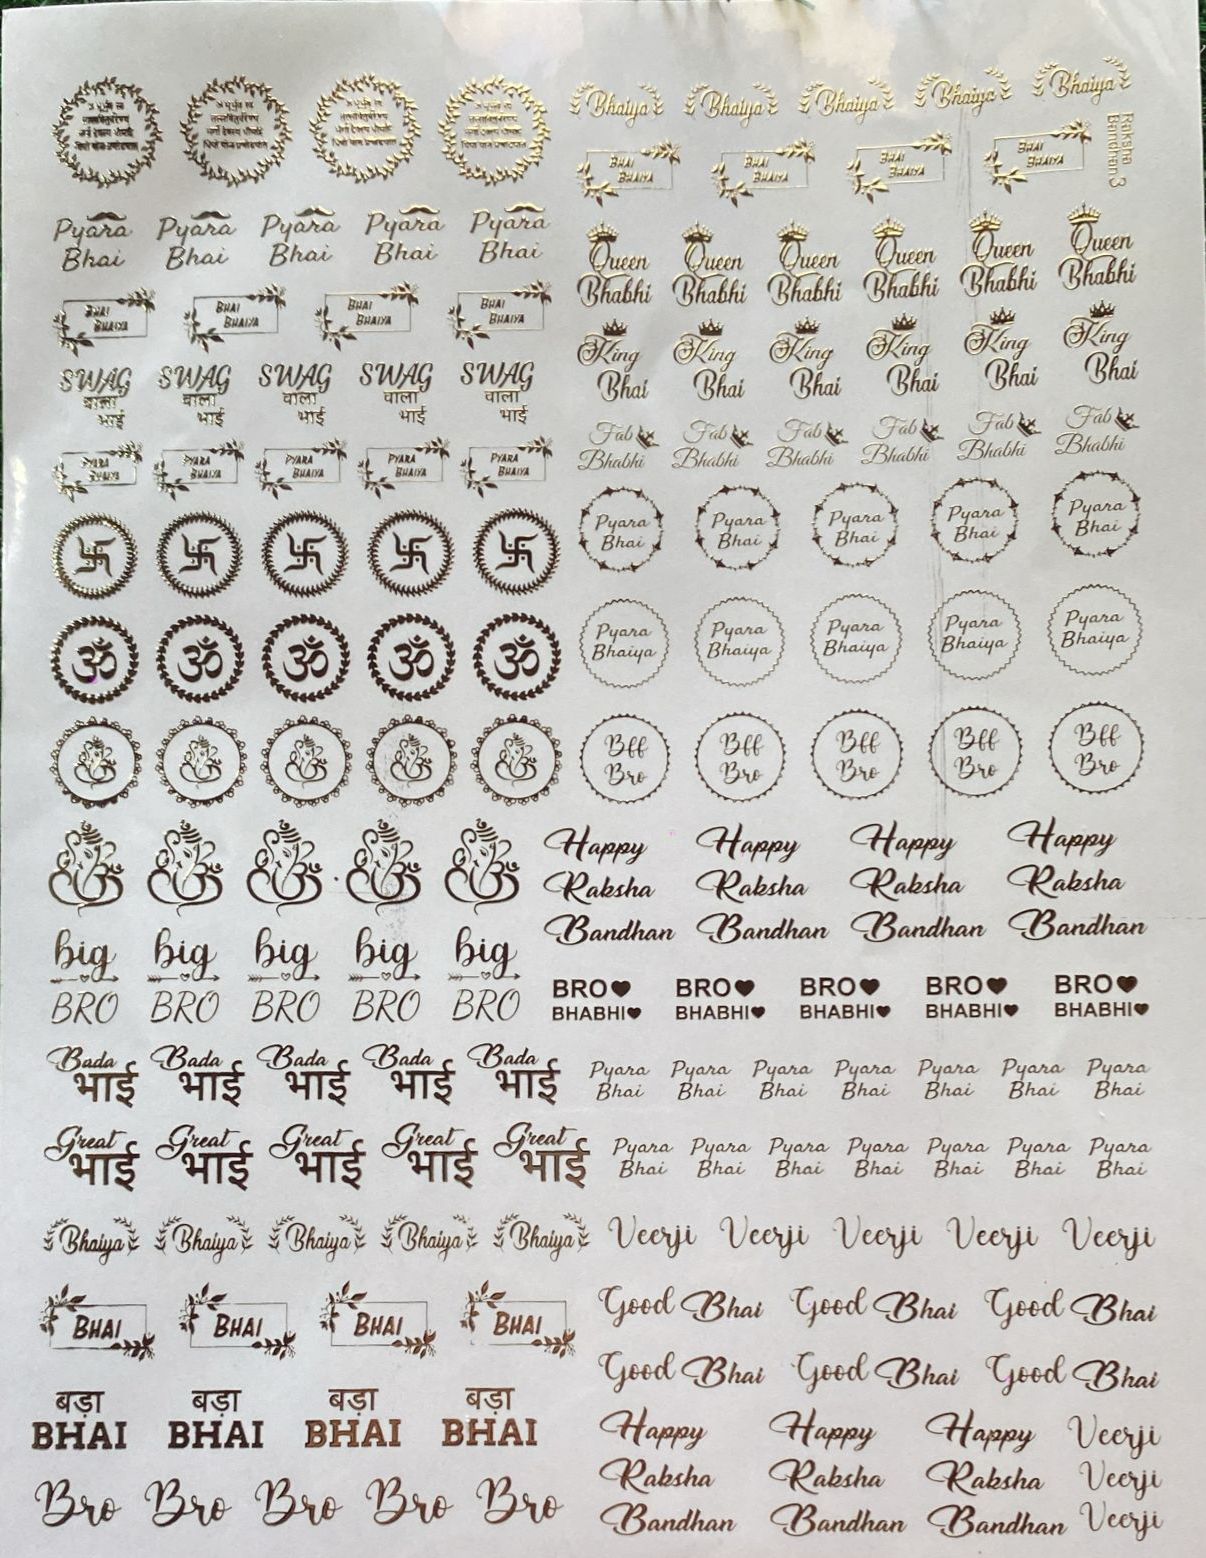 Pyara Pyara Pyara Pyara Pyara
Bhai Bhai Bhai Bhai Bhai
BHAI BHAI BHAI BHAI
BHAIYA BHAIYA BHAIYA BHAIYA
SWAG SWAG SWAG SWAG SWAG
वाला वाला वाला वाला वाला
भाई भाई भाई भाई भाई
PYARA PYARA PYARA PYARA PYARA
BHAIYA BHAIYA BHAIYA BHAIYA BHAIYA
ॐ ॐ ॐ ॐ ॐ
big big big big big
BRO BRO BRO BRO BRO
Bada Bada Bada Bada Bada
भाई भाई भाई भाई भाई
Great Great Great Great Great
भाई भाई भाई भाई भाई
Bhaiya Bhaiya Bhaiya Bhaiya Bhaiya
BHAI BHAI BHAI BHAI
बड़ा बड़ा बड़ा बड़ा
BHAI BHAI BHAI BHAI
Bro Bro Bro Bro Bro
Bhaiya Bhaiya Bhaiya Bhaiya Bhaiya
Raksha
Bandhan 3
BHAI BHAI BHAI BHAI
BHAIYA BHAIYA BHAIYA BHAIYA
Queen Queen Queen Queen Queen Queen
Bhabhi Bhabhi Bhabhi Bhabhi Bhabhi Bhabhi
King King King King King King
Bhai Bhai Bhai Bhai Bhai Bhai
Fab Fab Fab Fab Fab Fab
Bhabhi Bhabhi Bhabhi Bhabhi Bhabhi Bhabhi
Pyara Pyara Pyara Pyara Pyara
Bhai Bhai Bhai Bhai Bhai
Pyara Pyara Pyara Pyara Pyara
Bhaiya Bhaiya Bhaiya Bhaiya Bhaiya
Bff Bff Bff Bff Bff
Bro Bro Bro Bro Bro
Happy Happy Happy Happy
Raksha Raksha Raksha Raksha
Bandhan Bandhan Bandhan Bandhan
BRO BRO BRO BRO BRO
BHABHI BHABHI BHABHI BHABHI BHABHI
Pyara Pyara Pyara Pyara Pyara Pyara Pyara
Bhai Bhai Bhai Bhai Bhai Bhai Bhai
Pyara Pyara Pyara Pyara Pyara Pyara Pyara
Bhai Bhai Bhai Bhai Bhai Bhai Bhai
Veerji Veerji Veerji Veerji Veerji
Good Bhai Good Bhai Good Bhai
Good Bhai Good Bhai Good Bhai
Happy Happy Happy Veerji
Raksha Raksha Raksha Veerji
Bandhan Bandhan Bandhan Veerji